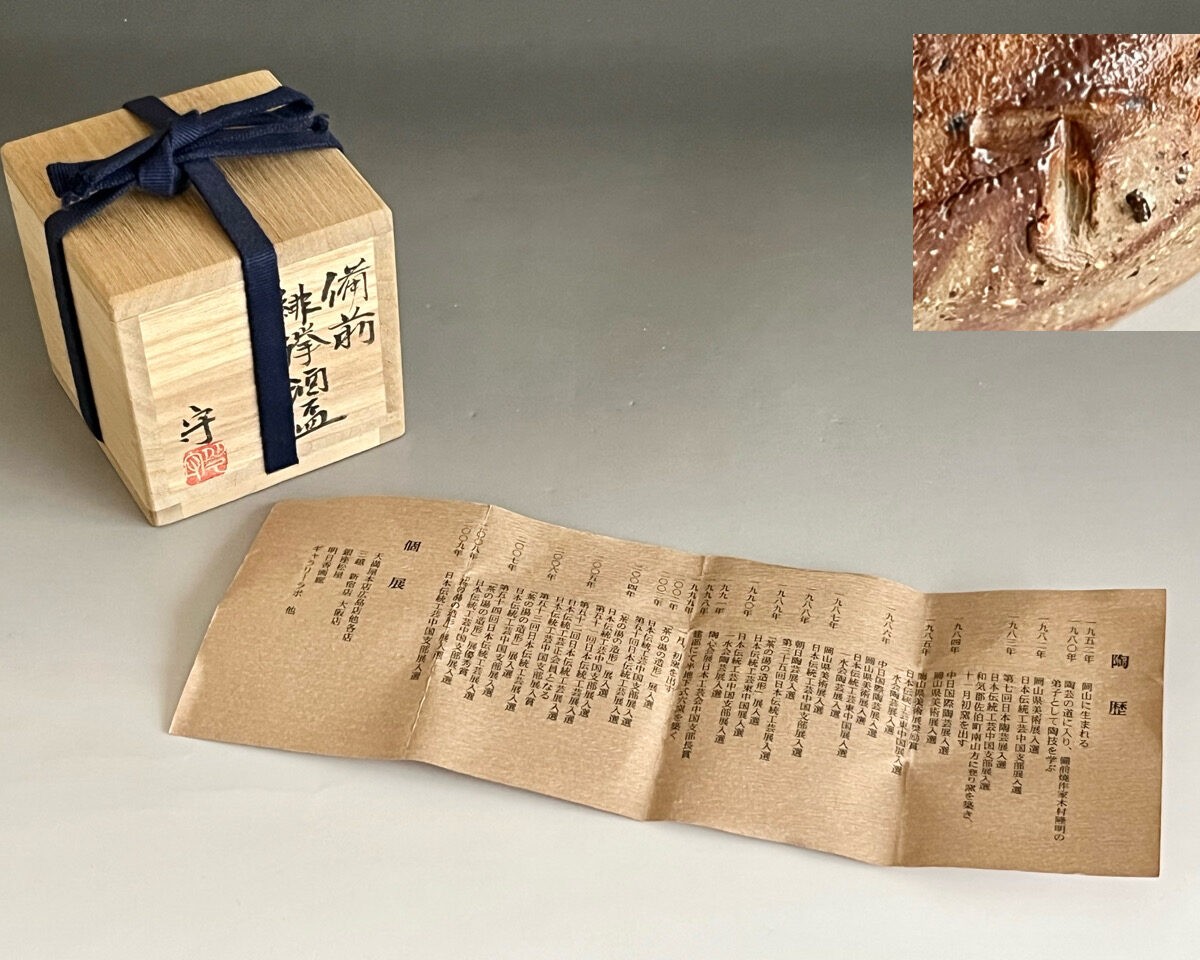 備前
緋襷酒盃
守
陶歴
一九五二年 岡山に生まれる
一九八〇年 陶芸の道に入り、備前焼作家木村隆明の
弟子として陶技を学ぶ
一九八二年 岡山県美術展入選
日本伝統工芸中国支部展入選
一九八三年 第七回日本陶芸展入選
日本伝統工芸中国支部展入選
一九八四年 和気郡佐伯町南山方に登り窯を築き、
十一月初窯を出す
中日国際陶芸展入選
一九八五年 岡山県美術展入選
岡山県美術展奨励賞
一九八六年
一水会陶芸展入選
中日国際陶芸展入選
岡山県美術展入選
一水会陶芸展入選
一九八七年 岡山県美術展入選
一九八八年 朝日陶芸展入選
第三十五回日本伝統工芸中国支部展入選
一九八九年 「茶の湯の造形」展入選
一九九〇年 日本伝統工芸東中国展入選
一水会陶芸展入選
陶心会展日本工芸会中国支部長賞
一九九八年
一九九九年 建部にて半地下式穴窯を築く
二〇〇一年 一月、初窯を出す
「茶の湯の造形」展入選
二〇〇四年 第五十一回日本伝統工芸展入選
「茶の湯の造形」展入選
二〇〇五年
二〇〇六年 日本伝統工芸正会員となる
第五十三回日本伝統工芸展入選
二〇〇七年 「茶の湯の造形」展入選
第五十四回日本伝統工芸展入選
二〇〇八年 「茶の湯の造形」展優秀賞
二〇〇九年 日本伝統工芸中国支部展入選
個展
天満屋本店広島店他各店
三越 新宿店 大阪店
銀座松屋
明日香画廊
ギャラリーラボ 他